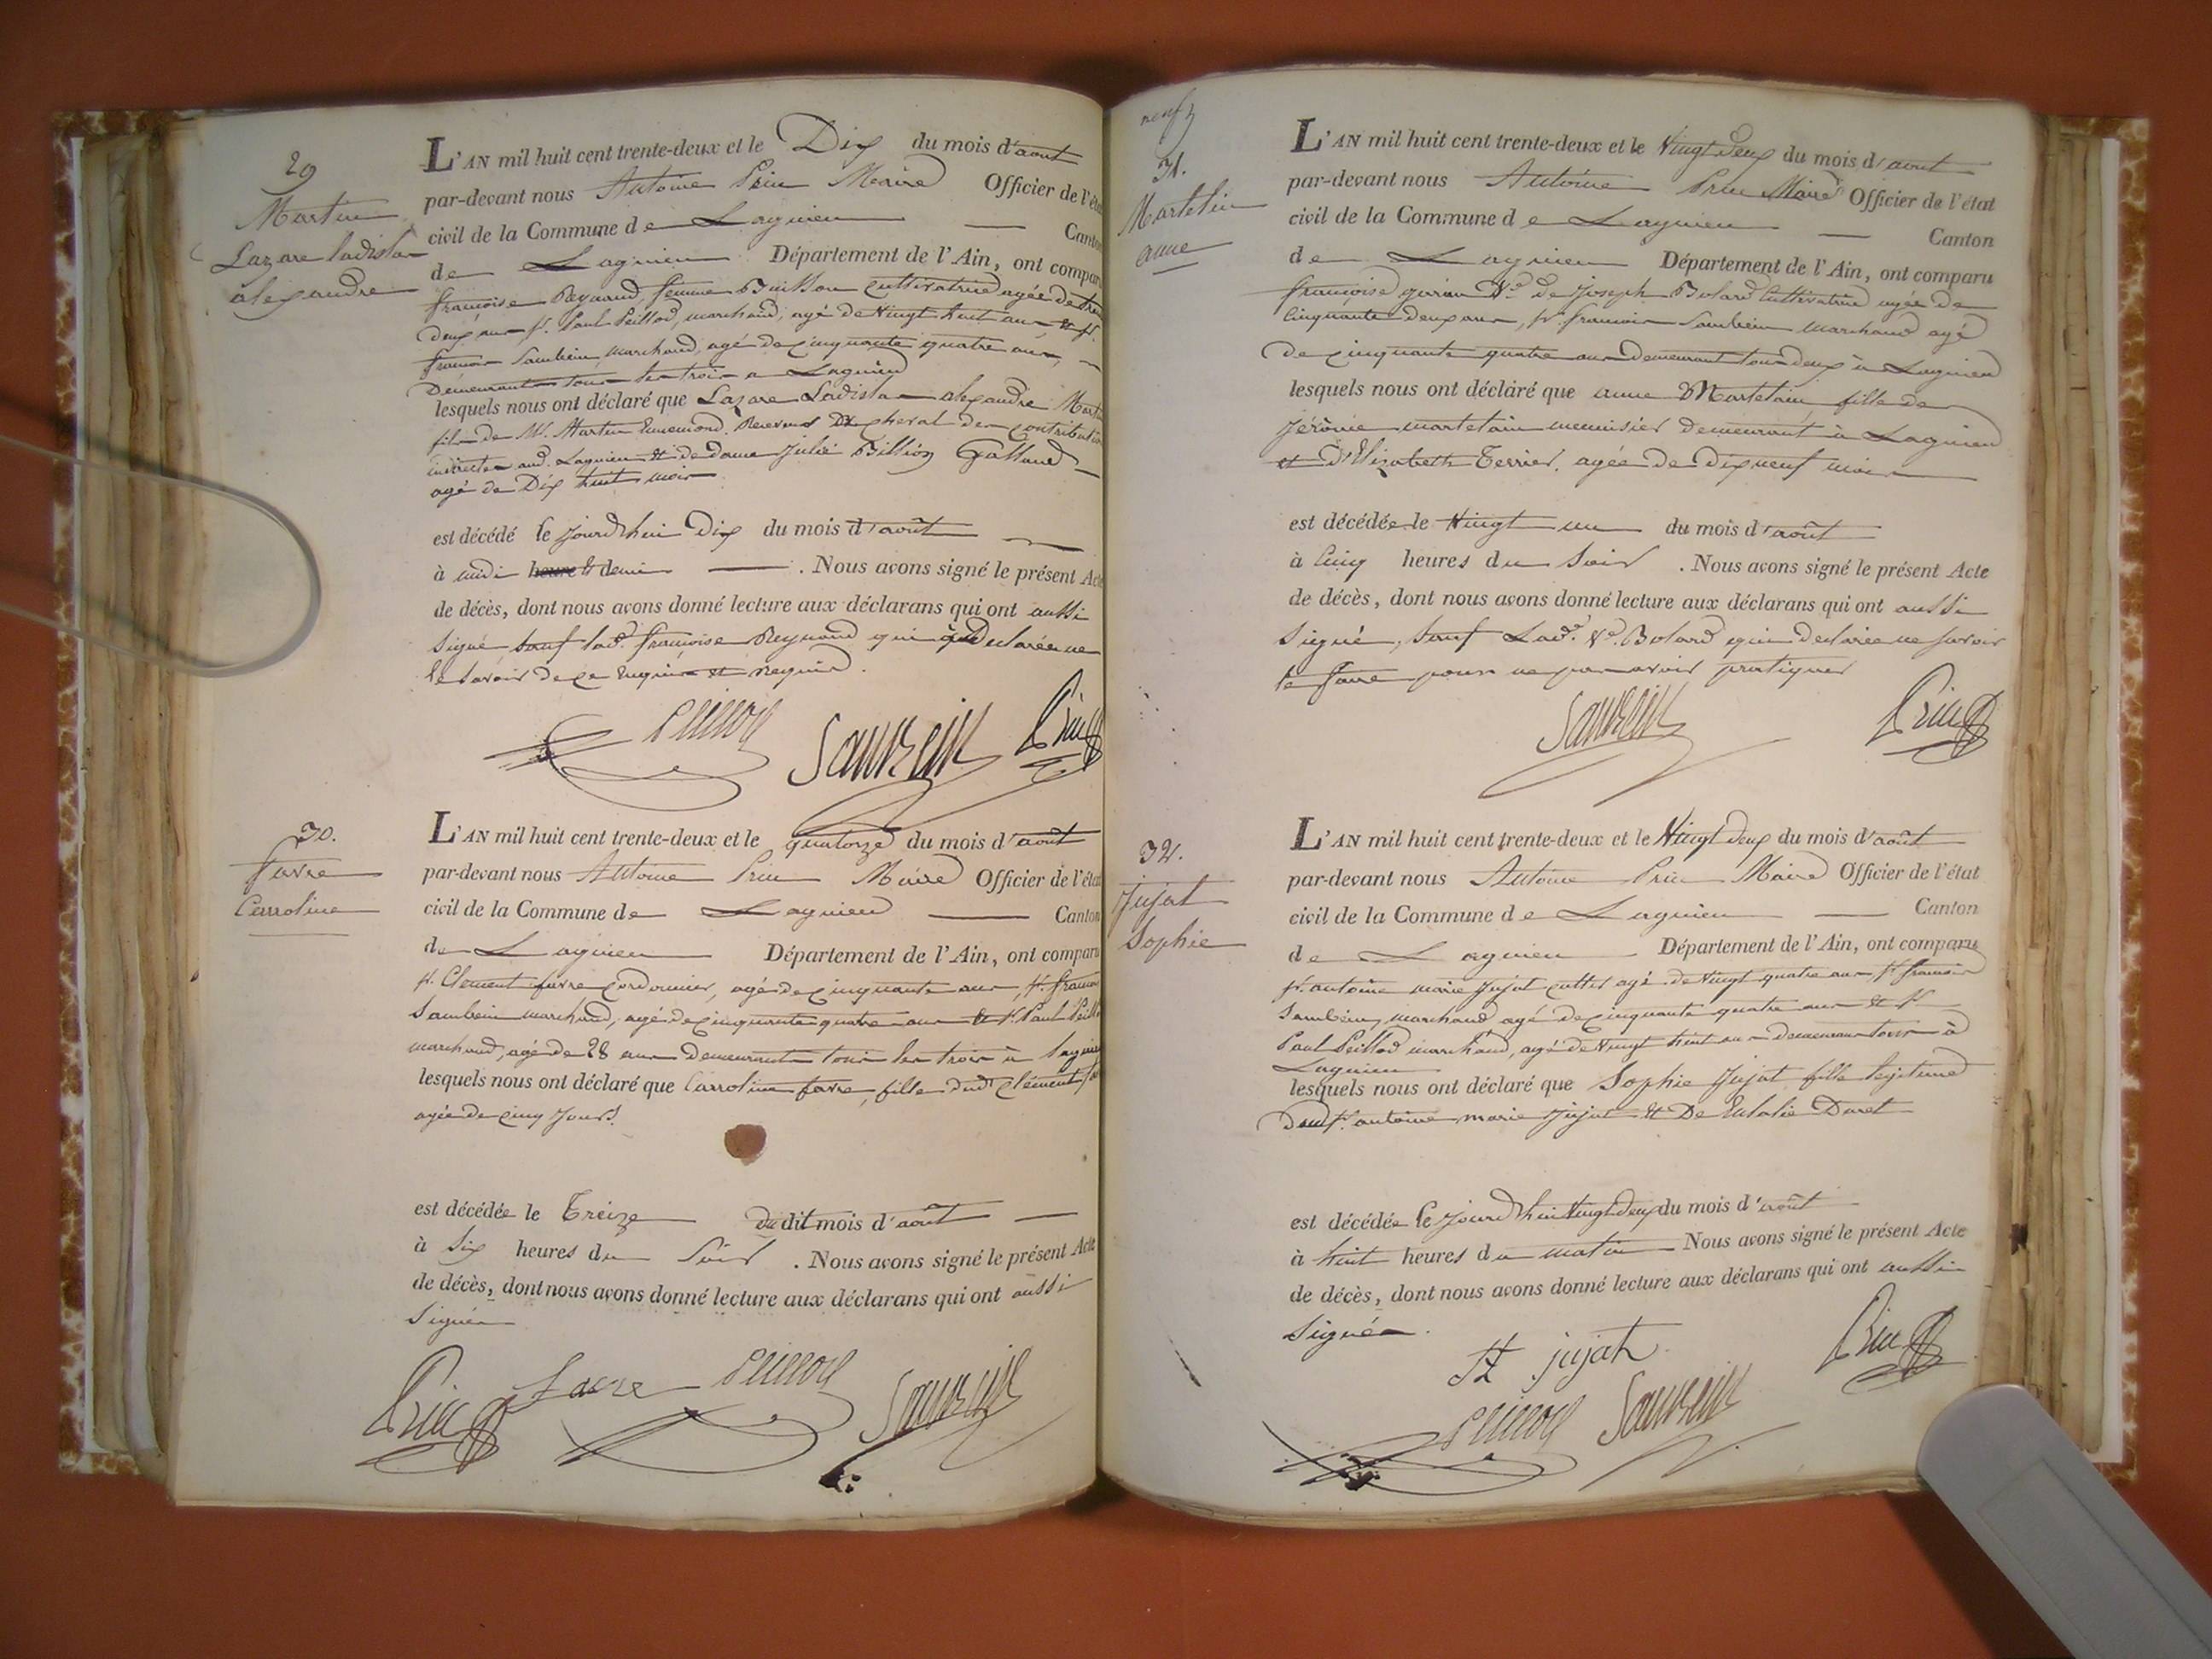 29
Martin
Lazare ladislas
alexandre
L'AN mil huit cent trente-deux et le Dix du mois d'aout
par-devant nous Antoine Prin Maire Officier de l'état
civil de la Commune de Lagnieu Canton
de Lagnieu Département de l'Ain, ont comparu
françoise Reynaud, femme Buisson cultivatrice agée de
deux ans sr. Paul Peillod, marchand, agé de vingt huit ans & sr.
françois Sambein, marchand, agé de cinquante quatre ans,
Demeurants tous les trois a Lagnieu
lesquels nous ont déclaré que Lazare Ladislas alexandre Martin
fils de Mr. Martin Receveur à cheval des contributions
indirectes aud. Lagnieu & de dame Julie Billion Galland
agé de Dix huit mois
est décédé le jourdhui Dix du mois d'août
à midi heure & demi . Nous avons signé le présent Acte
de décès, dont nous avons donné lecture aux déclarans qui ont aussi
signé sauf lad. françoise Reynaud qui a declarée ne
le savoir de ce enquise et requise.
Peillod Sambein Prin
30.
favre
Carroline
L'AN mil huit cent trente-deux et le quatorze du mois d'août
par-devant nous Antoine Prin Maire Officier de l'état
civil de la Commune de Lagnieu Canton
de Lagnieu Département de l'Ain, ont comparu
sr. Clement favre cordonnier, agé de cinquante ans, sr. françois
Sambein marchand, agé de cinquante quatre ans & sr. Paul Peillod
marchand, agé de 28 ans Demeurants tous les trois à Lagnieu
lesquels nous ont déclaré que Carroline favre, fille dudt Clément
agée de cinq jours.
est décédée le Treize dudit mois d'août
à six heures du Soir . Nous avons signé le présent Acte
de décès, dont nous avons donné lecture aux déclarans qui ont aussi
signés
Prin favre Peillod Sambein
31.
Martelin
anne
L'AN mil huit cent trente-deux et le Vingt Deux du mois d'aout
par-devant nous Antoine Prin Maire Officier de l'état
civil de la Commune de Lagnieu Canton
de Lagnieu Département de l'Ain, ont comparu
françoise Ve. de Joseph Bolard Cultivatrice agée de
Cinquante deux ans, sr. françois Sambein marchand agé
de cinquante quatre ans demeurant tous deux à Lagnieu
lesquels nous ont déclaré que anne Martelain fille de
Jérôme martelain menuisier demeurant à Lagnieu
et D'Elizabeth Terrier, agée de dix neuf mois
est décédée le Vingt un du mois d'août
à Cinq heures du Soir . Nous avons signé le présent Acte
de décès, dont nous avons donné lecture aux déclarans qui ont aussi
signé, Sauf Lade. Ve. Bolard qui declarée ne savoir
le faire pour ne pas avoir pratiquer
Sambein Prin
32.
Jujat
Sophie
L'AN mil huit cent trente-deux et le Vingt Deux du mois d'août
par-devant nous Antoine Prin Maire Officier de l'état
civil de la Commune de Lagnieu Canton
de Lagnieu Département de l'Ain, ont comparu
sr. antoine marie Jujat agé de Vingt quatre ans sr. françois
Sambein, marchand agé de cinquante quatre ans & sr
Paul Peillod marchand, agé de Vingt huit ans demeurans tous à
Lagnieu
lesquels nous ont déclaré que Sophie Jujat fille legitime
Dud sr. antoine marie Jujat & De Eulalie Duret
est décédée le jourdhui Vingt deux du mois d'août
à huit heures du matin Nous avons signé le présent Acte
de décès, dont nous avons donné lecture aux déclarans qui ont aussi
signés.
jujat Prin
Peillod Sambein